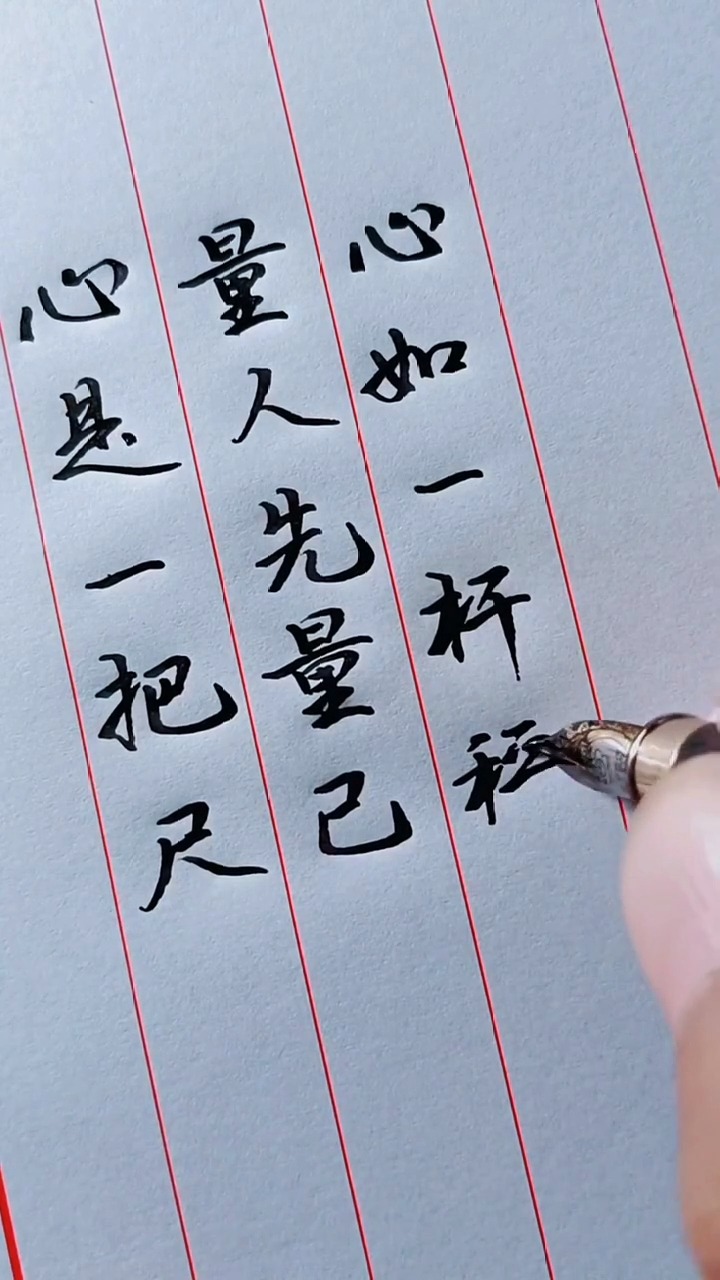 心是一把尺
量人先量己
心如一杆秤